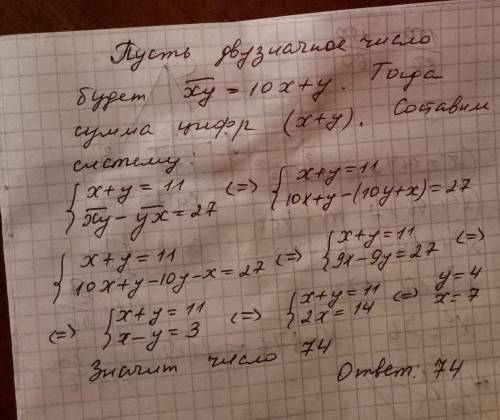 Пусть двузначное число
будет x̅y̅ = 10x+y. Тогда
сумма цифр (x+y). Составим
систему:
{ x+y = 11 ; x̅y̅ - y̅x̅ = 27 <=> { x+y = 11 ; 10x+y-(10y+x) = 27
{ x+y = 11 ; 10x+y-10y-x = 27 <=> { x+y = 11 ; 9x-9y = 27 <=>
<=> { x+y = 11 ; x-y = 3 <=> { x+y = 11 ; 2x = 14 <=> y = 4 x = 7
Значит число 74
Ответ: 74